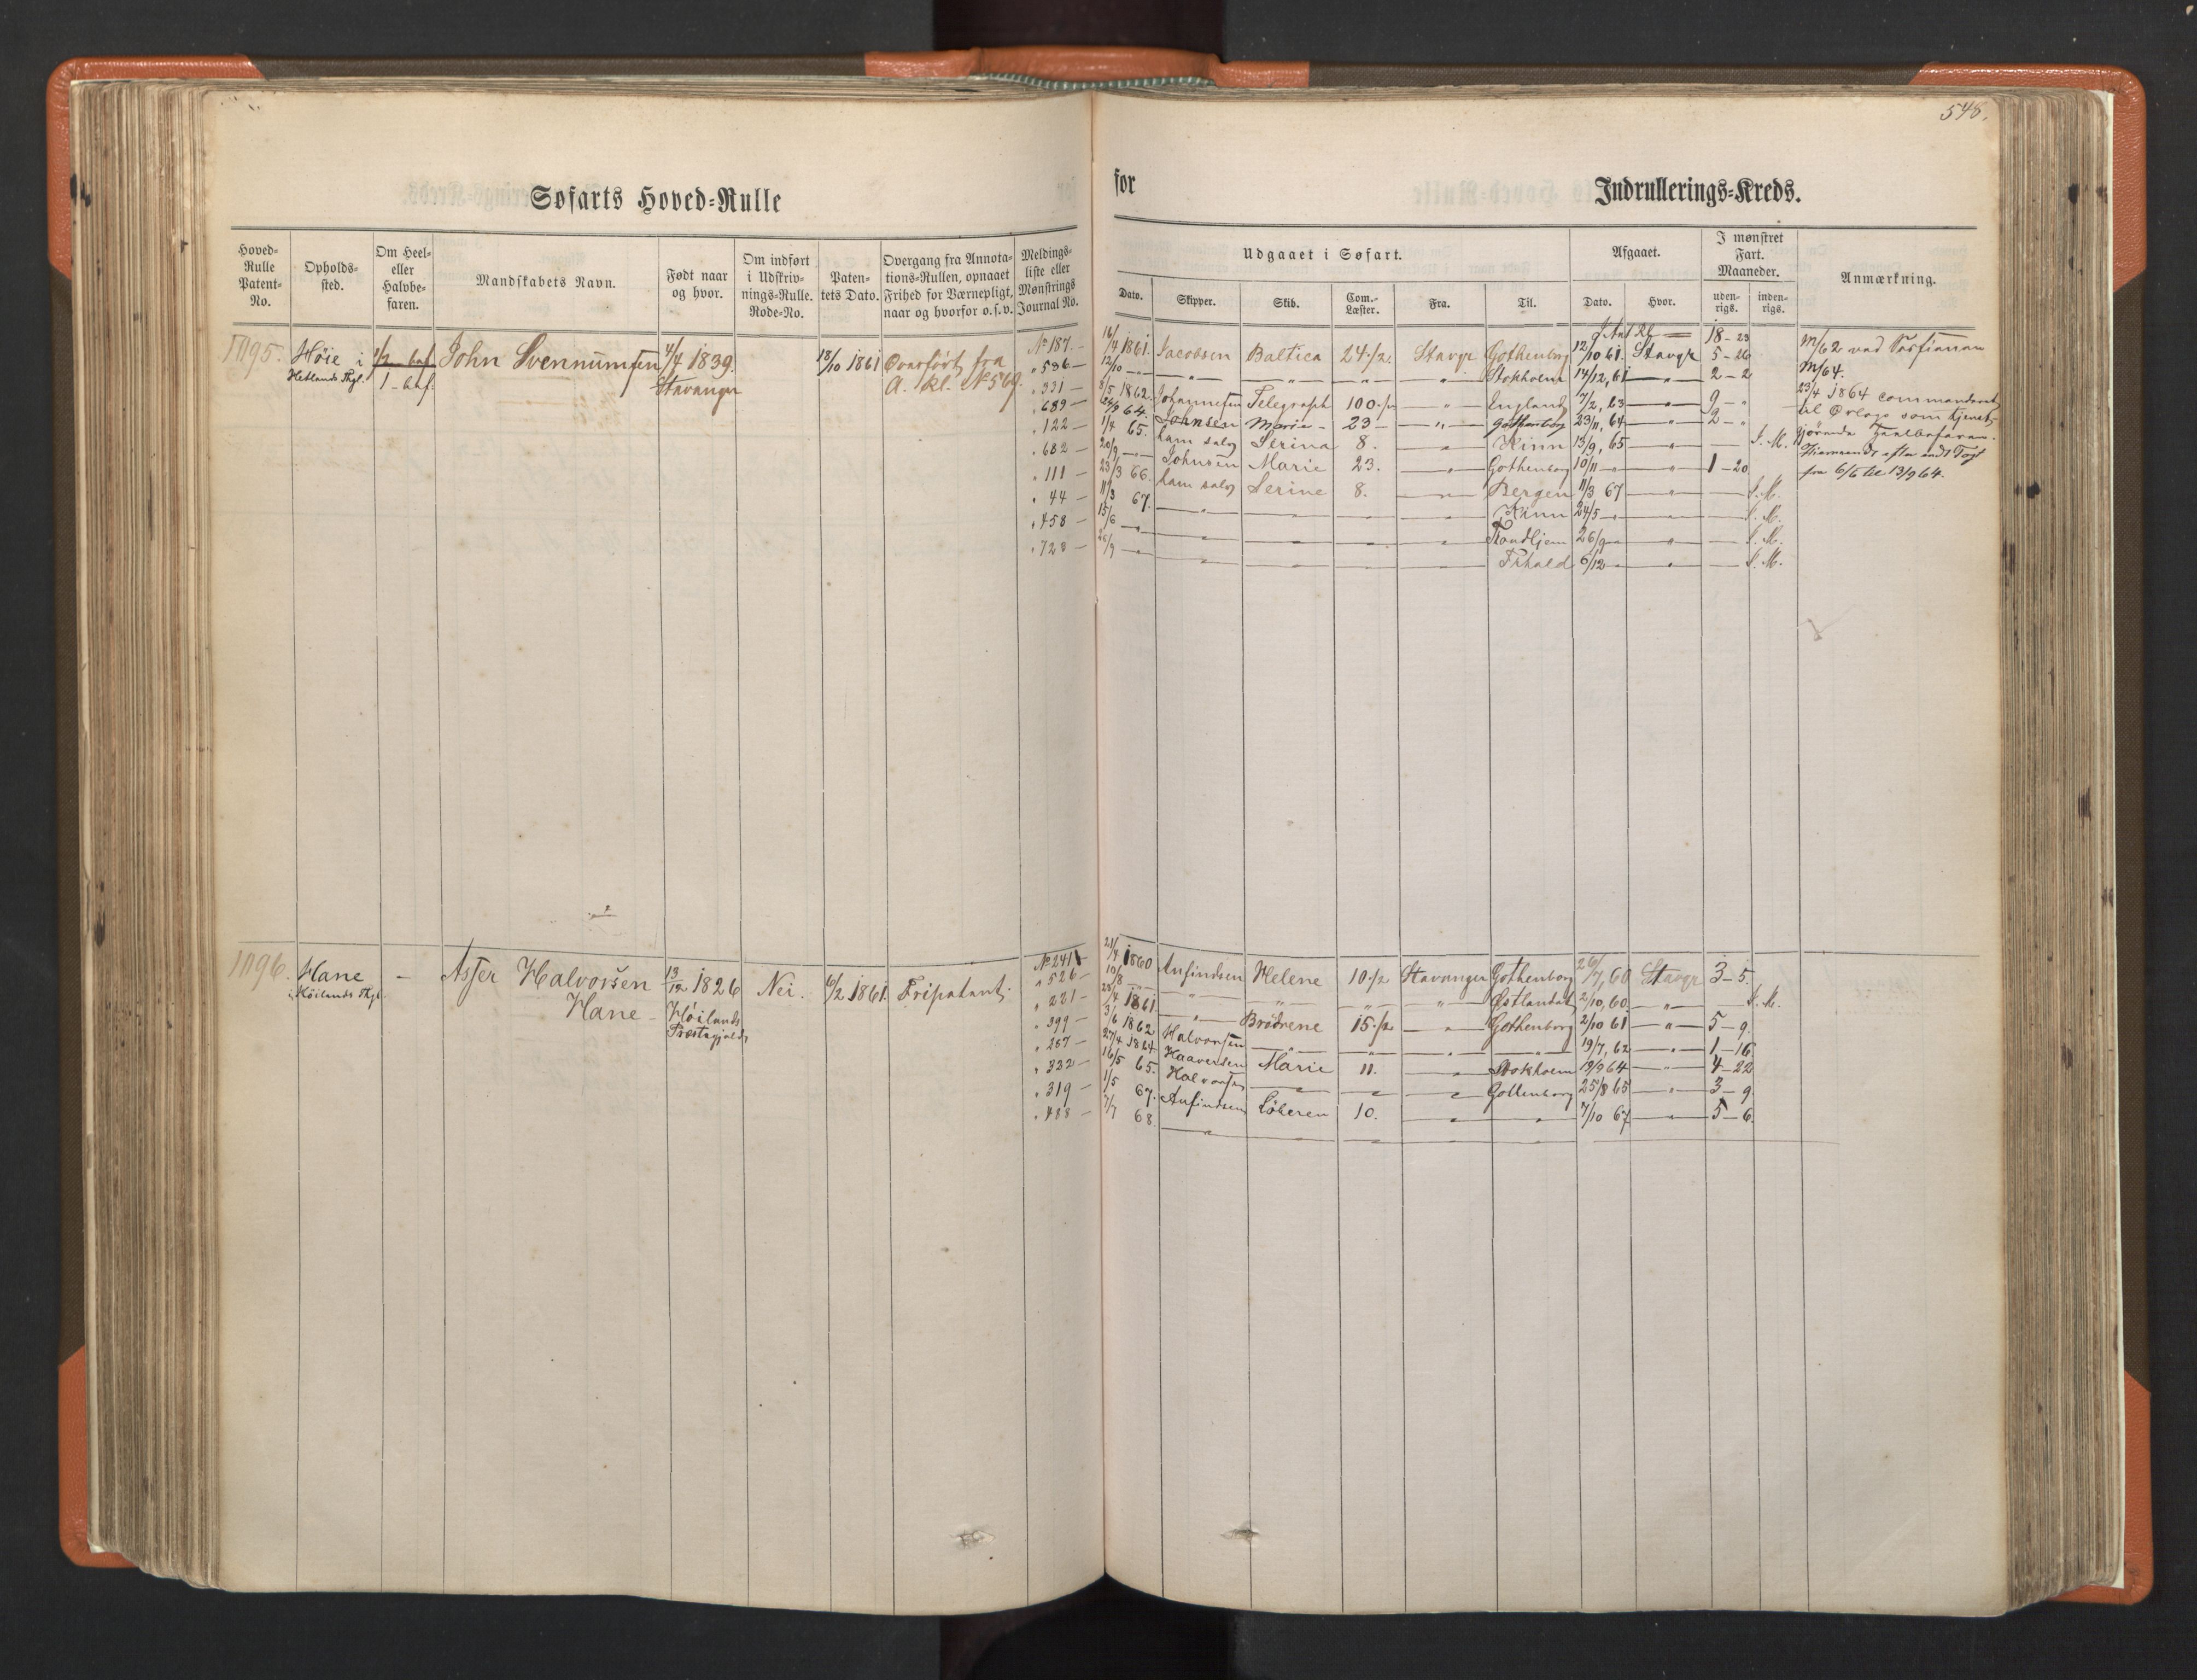 548.
Søfarts Hoved-Rulle
for
Indrullerings-Kreds.
Hoved-Rulle Patent-No.
Opholds-sted.
Om Heel- eller Halvbe-faren.
Mandskabets Navn.
Født naar og hvor.
Om indført i Udskriv-nings-Rulle. Rode-No.
Paten-tets Dato.
Overgang fra Annota-tions-Rullen, opnaaet Frihed for Værnepligt, naar og hvorfor o.s.v.
Meldings-liste eller Mønstrings Journal No.
Udgaaet i Søfart.
Dato.
Skipper.
Skib.
Com.-Læster.
Fra.
Til.
Afgaaet.
Dato.
Hvor.
I mønstret Fart. Maaneder.
uden-rigs.
inden-rigs.
Anmærkning.
1195. Høie i 1/2 bef. John Svennumsen 4/4 1839. 18/10 1861 Overført fra
Hetlands Thgl. 1 - bef. Stavanger A. Rl. N° 569.
N° 187. - 16/4 1861. Jacobsen Baltica 24 1/2 Stavgr Gothenborg 12/10 61. Stavgr 18 - 23
" 536 - 12/10 - " - Stokholm 14/12, 61 - " - 5 - 26
" 331 - 8/5 1862. Johannesen Telegraph 100 1/2 - " - England 7/2, 63 - " - 2 - 2
" 689 - 24/9 64. Johnsen Maria - 23 - - " - Gothenborg 23/11, 64 - " - 9 - "
" 122 - 1/4 65. ham selv Serina 8. - " - Kinn 13/9, 65 - " - 2 - "
" 682 - 20/9 - " - Johnsen Marie 23. - " - Gothenborg 10/11 - " - S. M.
" 111 - 23/3 66. ham selv Serine 8. - " - Bergen 11/3 67 - " - 1 - 20
" 44 - 11/3 67. - " - Kinn 24/5 - " - S. M.
" 458 - 15/6 - " - 26/9 - " - S. M.
" 728 - 26/9 - " - 6/12 - " - S. M.
S. M.
M/62 ved
M/64.
23/4 1864 commanderet
til Orlogs som tjenest-
gjørende Heelbefaren.
Hjemsendt efter endt Togt
fra 6/6 til 13/9 64.
1196. Hane - Asser Halvorsen 13/12 1826 Nei. 6/2 1861. Fripatent.
i Høilands Thgl. Hane - Høilands Præstegjeld
N° 241 21/4 1860 Anfindsen Helene 10 1/2 Stavanger Gothenborg 26/7, 60 Stavgr 3 - 5.
" 526 - 10/8 - " - Østlandet 2/10, 60. - " - S. M.
" 221 - /4 1861. - " - Brødrene 15 1/2 - " - Gothenborg 2/10 61 - " - 5 - 9.
" 399 - 3/6 1862 Halvorsen - " - 19/7, 62 - " - 1 - 16
" 267 - 27/4 1864 Haaversen Marie 11. - " - Stokholm 19/9 64 - " - 4 - 22
" 322 - 16/5 65. Halvorsen - " - Gothenborg 25/8 65 - " - 3 - 9
" 319 - 1/5 67. Anfindsen Løberen 10. - " - 7/10 67 - " - 5 - 6.
" 488 - 7/7 68. - " -